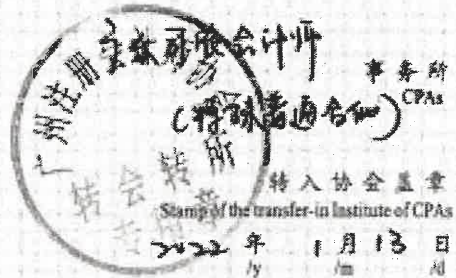 会计师
事务所
CPAs
(特殊普通合伙)
广州注册
转会转所
转入协会盖章
Stamp of the transfer-in Institute of CPAs
2022 年 1 月 13 日
/y /m /d